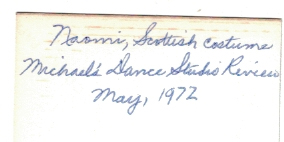 Naomi, Scottish costume
Michael's Dance Studio Review
May, 1972